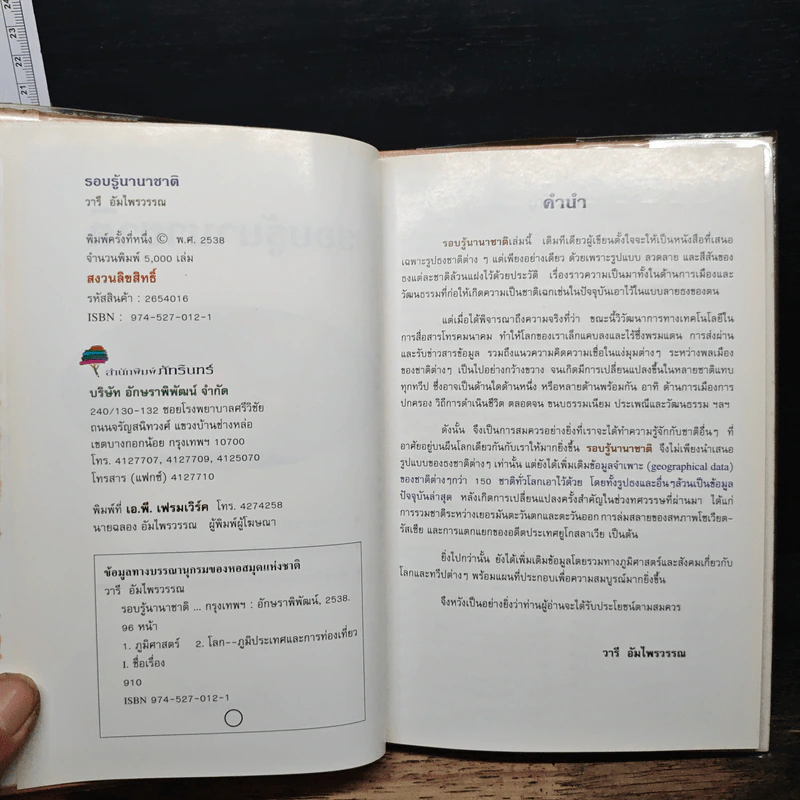 24
23
22
21
รอบรู้นานาชาติ
วารี อัมไพรวรรณ
พิมพ์ครั้งที่หนึ่ง © พ.ศ. 2538
จำนวนพิมพ์ 5,000 เล่ม
สงวนลิขสิทธิ์
รหัสสินค้า : 2654016
ISBN : 974-527-012-1
สำนักพิมพ์ภัทรินทร์
บริษัท อักษราพิพัฒน์ จำกัด
240/130-132 ซอยโรงพยาบาลศรีวิชัย
ถนนจรัญสนิทวงศ์ แขวงบ้านช่างหล่อ
เขตบางกอกน้อย กรุงเทพฯ 10700
โทร. 4127707, 4127709, 4125070
โทรสาร (แฟกซ์) 4127710
พิมพ์ที่ เอ.พี. เฟรมเวิร์ค โทร. 4274258
นายฉลอง อัมไพรวรรณ ผู้พิมพ์ผู้โฆษณา
ข้อมูลทางบรรณานุกรมของหอสมุดแห่งชาติ
วารี อัมไพรวรรณ
รอบรู้นานาชาติ ... กรุงเทพฯ : อักษราพิพัฒน์, 2538.
96 หน้า
1. ภูมิศาสตร์ 2. โลก--ภูมิประเทศและการท่องเที่ยว
I. ชื่อเรื่อง
910
ISBN 974-527-012-1
คำนำ
รอบรู้นานาชาติเล่มนี้ เดิมทีเดียวผู้เขียนตั้งใจจะให้เป็นหนังสือที่เสนอ
เฉพาะรูปธงชาติต่าง ๆ แต่เพียงอย่างเดียว ด้วยเพราะรูปแบบ ลวดลาย และสีสันของ
ธงแต่ละชาติล้วนแฝงไว้ด้วยประวัติ เรื่องราวความเป็นมาทั้งในด้านการเมืองและ
วัฒนธรรมที่ก่อให้เกิดความเป็นชาติเฉกเช่นในปัจจุบันเอาไว้ในแบบลายธงของตน
แต่เมื่อได้พิจารณาถึงความจริงที่ว่า ขณะนี้วิวัฒนาการทางเทคโนโลยีใน
การสื่อสารโทรคมนาคม ทำให้โลกของเราเล็กแคบลงและไร้ซึ่งพรมแดน การส่งผ่าน
และรับข่าวสารข้อมูล รวมถึงแนวความคิดความเชื่อในแง่มุมต่างๆ ระหว่างพลเมือง
ของชาติต่างๆ เป็นไปอย่างกว้างขวาง จนเกิดมีการเปลี่ยนแปลงขึ้นในหลายชาติแทบ
ทุกทวีป ซึ่งอาจเป็นด้านใดด้านหนึ่ง หรือหลายด้านพร้อมกัน อาทิ ด้านการเมืองการ
ปกครอง วิถีการดำเนินชีวิต ตลอดจน ขนบธรรมเนียม ประเพณีและวัฒนธรรม ฯลฯ
ดังนั้น จึงเป็นการสมควรอย่างยิ่งที่เราจะได้ทำความรู้จักกับชาติอื่นๆ ที่
อาศัยอยู่บนผืนโลกเดียวกันกับเราให้มากยิ่งขึ้น รอบรู้นานาชาติ จึงไม่เพียงนำเสนอ
รูปแบบของธงชาติต่างๆ เท่านั้น แต่ยังได้เพิ่มเติมข้อมูลจำเพาะ (geographical data)
ของชาติต่างๆกว่า 150 ชาติทั่วโลกเอาไว้ด้วย โดยทั้งรูปธงและอื่นๆล้วนเป็นข้อมูล
ปัจจุบันล่าสุด หลังเกิดการเปลี่ยนแปลงครั้งสำคัญในช่วงทศวรรษที่ผ่านมา ได้แก่
การรวมชาติระหว่างเยอรมันตะวันตกและตะวันออก การล่มสลายของสหภาพโซเวียต-
รัสเซีย และการแตกแยกของอดีตประเทศยูโกสลาเวีย เป็นต้น
ยิ่งไปกว่านั้น ยังได้เพิ่มเติมข้อมูลโดยรวมทางภูมิศาสตร์และสังคมเกี่ยวกับ
โลกและทวีปต่างๆ พร้อมแผนที่ประกอบเพื่อความสมบูรณ์มากยิ่งขึ้น
จึงหวังเป็นอย่างยิ่งว่าท่านผู้อ่านจะได้รับประโยชน์ตามสมควร
วารี อัมไพรวรรณ